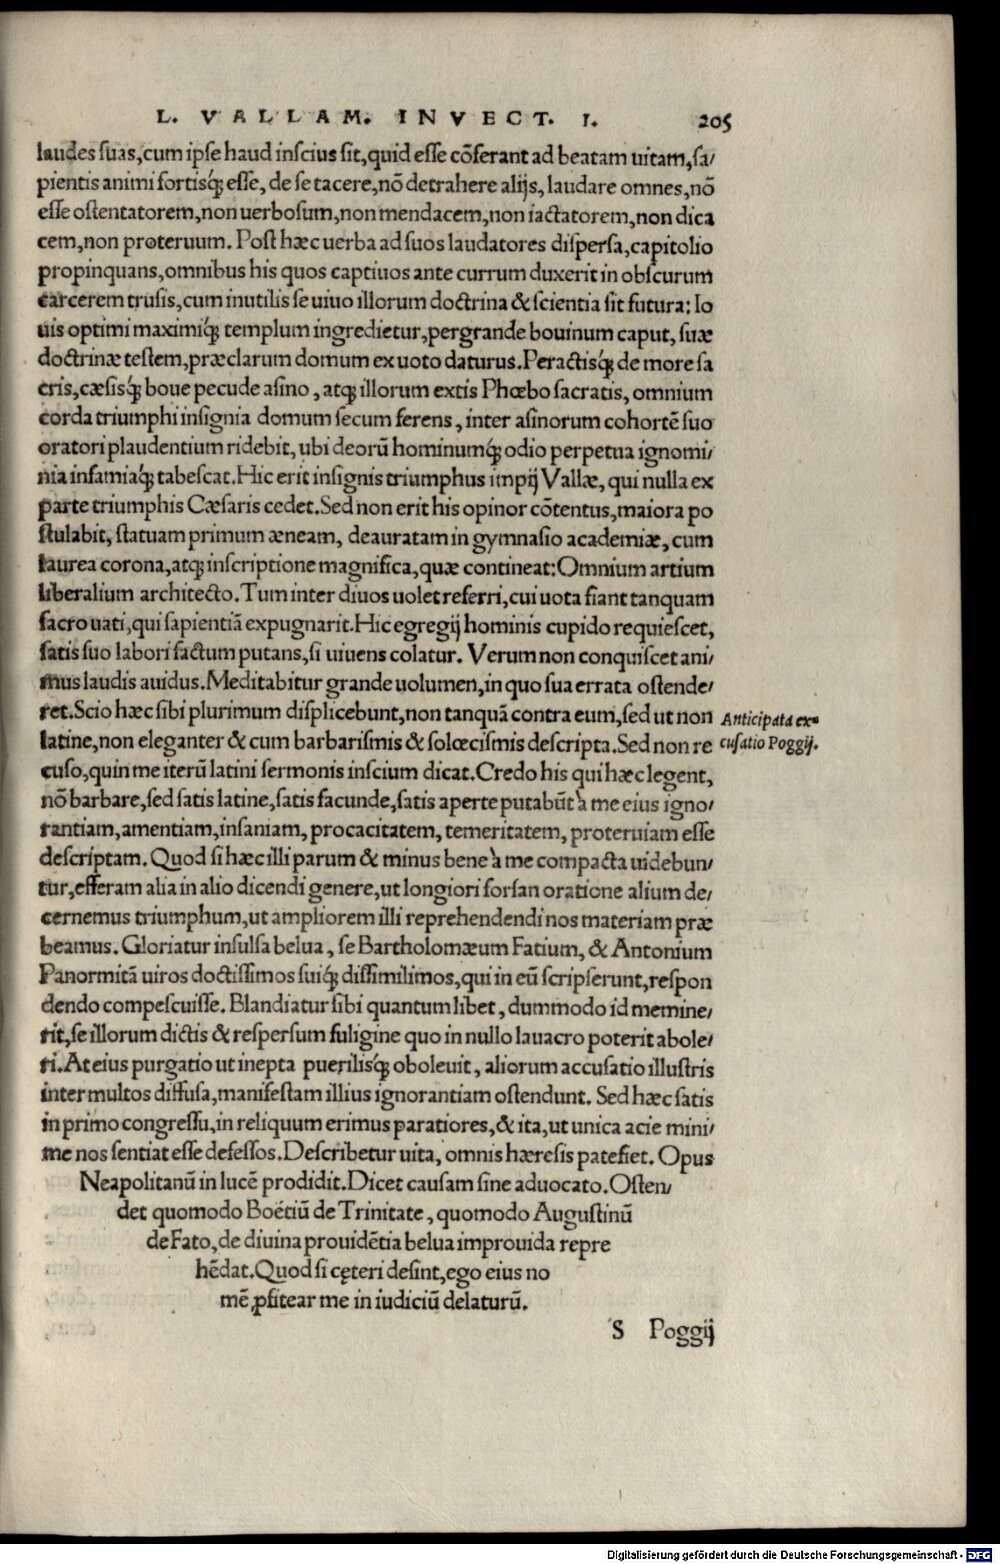 L. VALLAM. INVECT. I. 205
laudes suas, cum ipse haud inscius sit, quid esse cõferant ad beatam uitam, sa/
pientis animi fortisq́; esse, de se tacere, nõ detrahere alijs, laudare omnes, nõ
esse ostentatorem, non uerbosum, non mendacem, non iactatorem, non dica
cem, non proteruum. Post hæc uerba ad suos laudatores dispersa, capitolio
propinquans, omnibus his quos captiuos ante currum duxerit in obscurum
carcerem trusis, cum inutilis se uiuo illorum doctrina & scientia sit futura: Io
uis optimi maximiq́; templum ingredietur, pergrande bouinum caput, suæ
doctrinæ testem, præclarum domum ex uoto daturus. Peractisq́; de more sa
cris, cæsisq́; boue pecude asino, atq; illorum extis Phœbo sacratis, omnium
corda triumphi insignia domum secum ferens, inter asinorum cohortẽ suo
oratori plaudentium ridebit, ubi deorũ hominumq́; odio perpetua ignomi/
nia infamiaq́; tabescat. Hic erit insignis triumphus impij Vallæ, qui nulla ex
parte triumphis Cæsaris cedet. Sed non erit his opinor cõtentus, maiora po
stulabit, statuam primum æneam, deauratam in gymnasio academiæ, cum
laurea corona, atq; inscriptione magnifica, quæ contineat: Omnium artium
liberalium architecto. Tum inter diuos uolet referri, cui uota fiant tanquam
sacro uati, qui sapientiã expugnarit. Hic egregij hominis cupido requiescet,
satis suo labori factum putans, si uiuens colatur. Verum non conquiscet ani/
mus laudis auidus. Meditabitur grande uolumen, in quo sua errata ostende/
ret. Scio hæc sibi plurimum displicebunt, non tanquã contra eum, sed ut non
Anticipata ex=
latine, non eleganter & cum barbarismis & solœcismis descripta. Sed non re
cusatio Poggij.
cuso, quin me iterũ latini sermonis inscium dicat. Credo his qui hæc legent,
nõ barbare, sed satis latine, satis facunde, satis aperte putabũt à me eius igno/
rantiam, amentiam, insaniam, procacitatem, temeritatem, proteruiam esse
descriptam. Quod si hæc illi parum & minus bene à me compacta uidebun/
tur, efferam alia in alio dicendi genere, ut longiori forsan oratione alium de/
cernemus triumphum, ut ampliorem illi reprehendendi nos materiam præ
beamus. Gloriatur insulsa belua, se Bartholomæum Fatium, & Antonium
Panormitã uiros doctissimos suiq́; dissimilimos, qui in eũ scripserunt, respon
dendo compescuisse. Blandiatur sibi quantum libet, dummodo id memine/
rit, se illorum dictis & respersum fuligine quo in nullo lauacro poterit abole/
ri. At eius purgatio ut inepta puerilisq́; oboleuit, aliorum accusatio illustris
inter multos diffusa, manifestam illius ignorantiam ostendunt. Sed hæc satis
in primo congressu, in reliquum erimus paratiores, & ita, ut unica acie mini/
me nos sentiat esse defessos. Describetur uita, omnis hæresis patefiet. Opus
Neapolitanũ in lucẽ prodidit. Dicet causam sine aduocato. Osten/
det quomodo Boétiũ de Trinitate, quomodo Augustinũ
de Fato, de diuina prouidẽtia belua improuida repre
hẽdat. Quod si cęteri desint, ego eius no
mẽ ꝓfitear me in iudiciũ delaturũ.
S Poggij
Digitalisierung gefördert durch die Deutsche Forschungsgemeinschaft - DFG